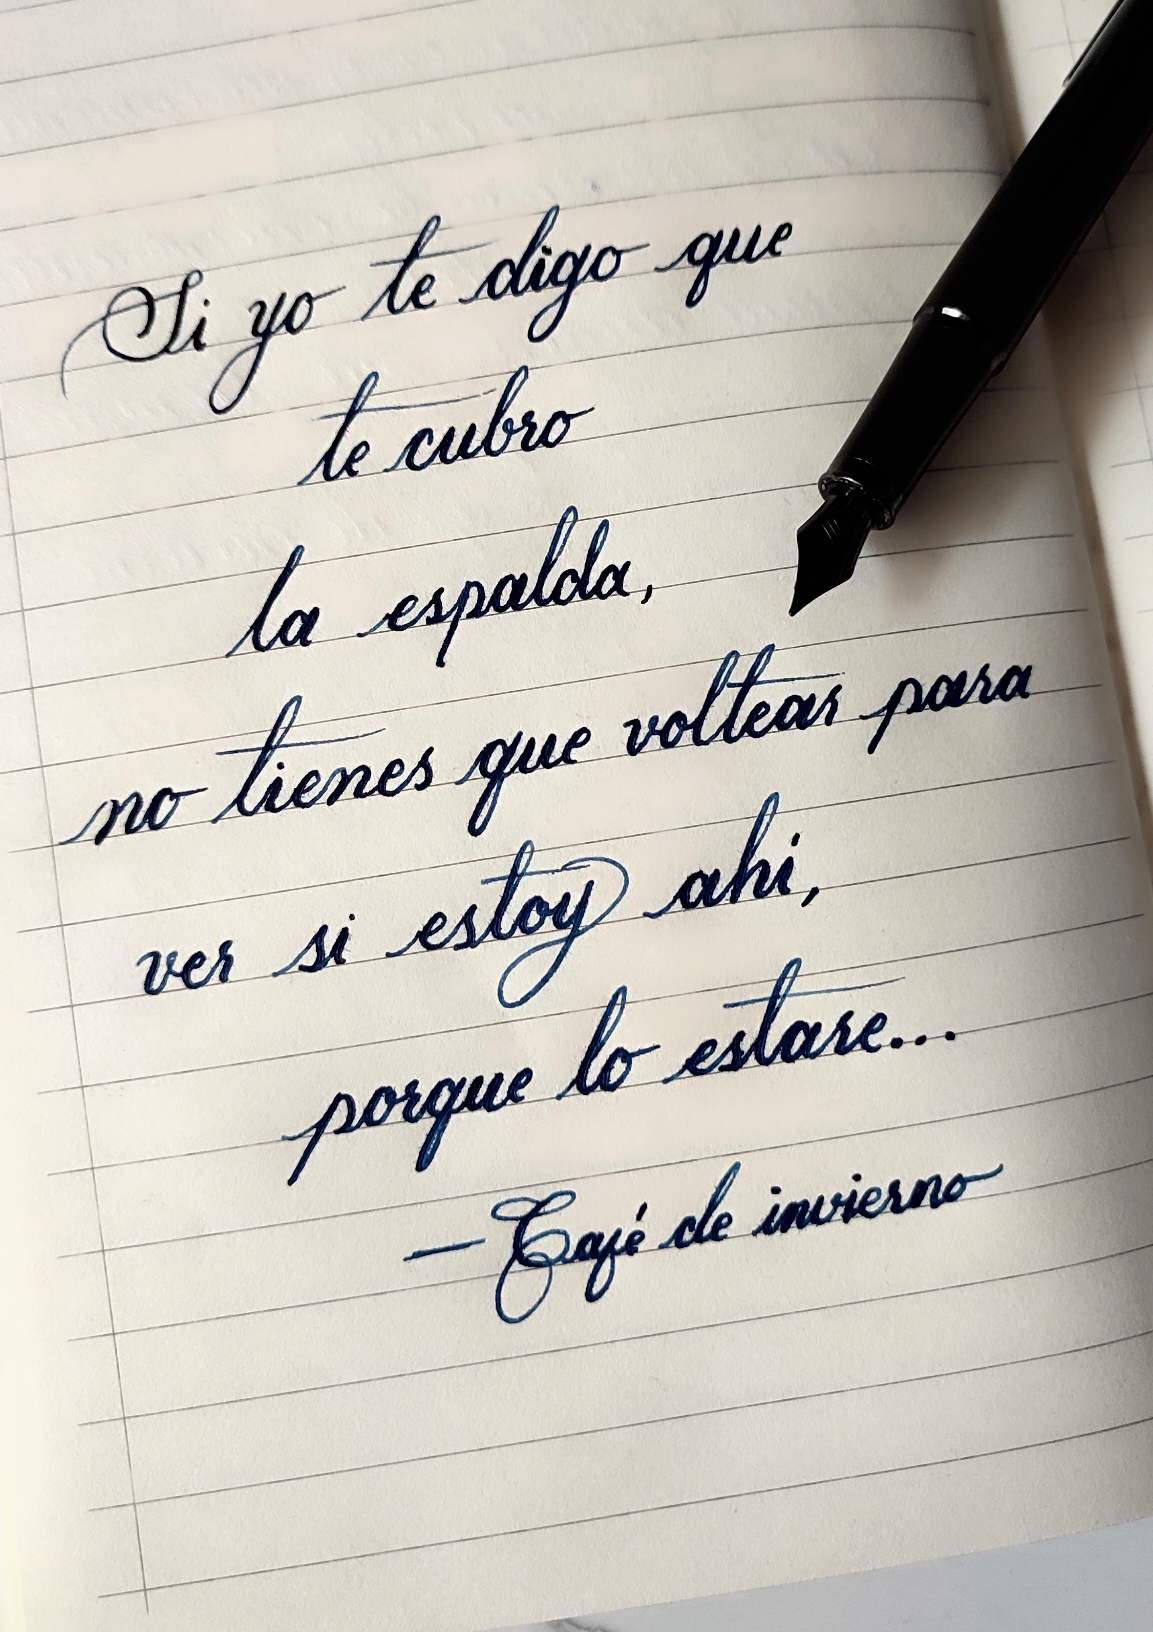 Si yo te digo que
te cubro
la espalda,
no tienes que voltear para
ver si estoy ahi,
porque lo estare...
— Café de invierno